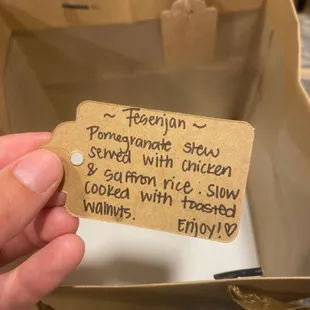 ~ Fesenjan ~
Pomegranate stew
served with chicken
& saffron rice. Slow
cooked with toasted
walnuts.
Enjoy!♡